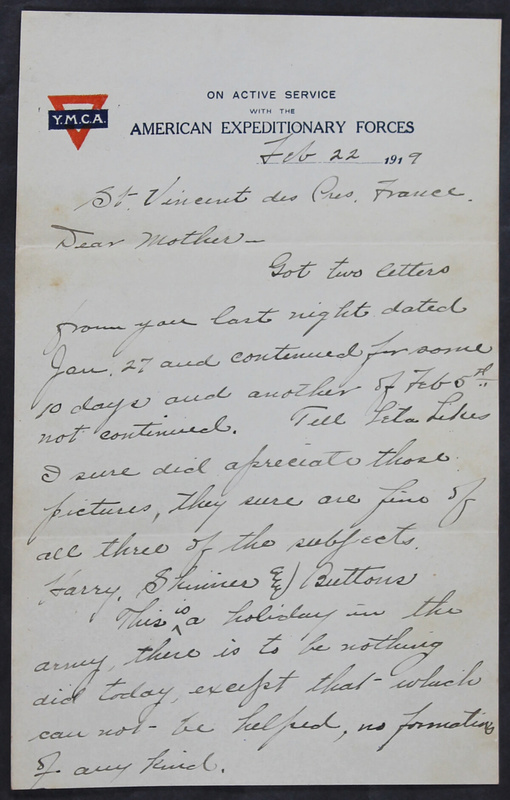 Y.M.C.A.
ON ACTIVE SERVICE
WITH THE
AMERICAN EXPEDITIONARY FORCES
Feb 22 1919
St. Vincent des Pres. France.
Dear Mother—
Got two letters
from you last night dated
Jan. 27 and continued for some
10 days and another of Feb 5th
not continued. Tell Leta Likes
I sure did apreciate those
pictures, they sure are fine of
all three of the subjects.
Harry, Skinner & Buttons
This is a holiday in the
army, there is to be nothing
did today, except that which
can not be helped, no formations
of any kind.